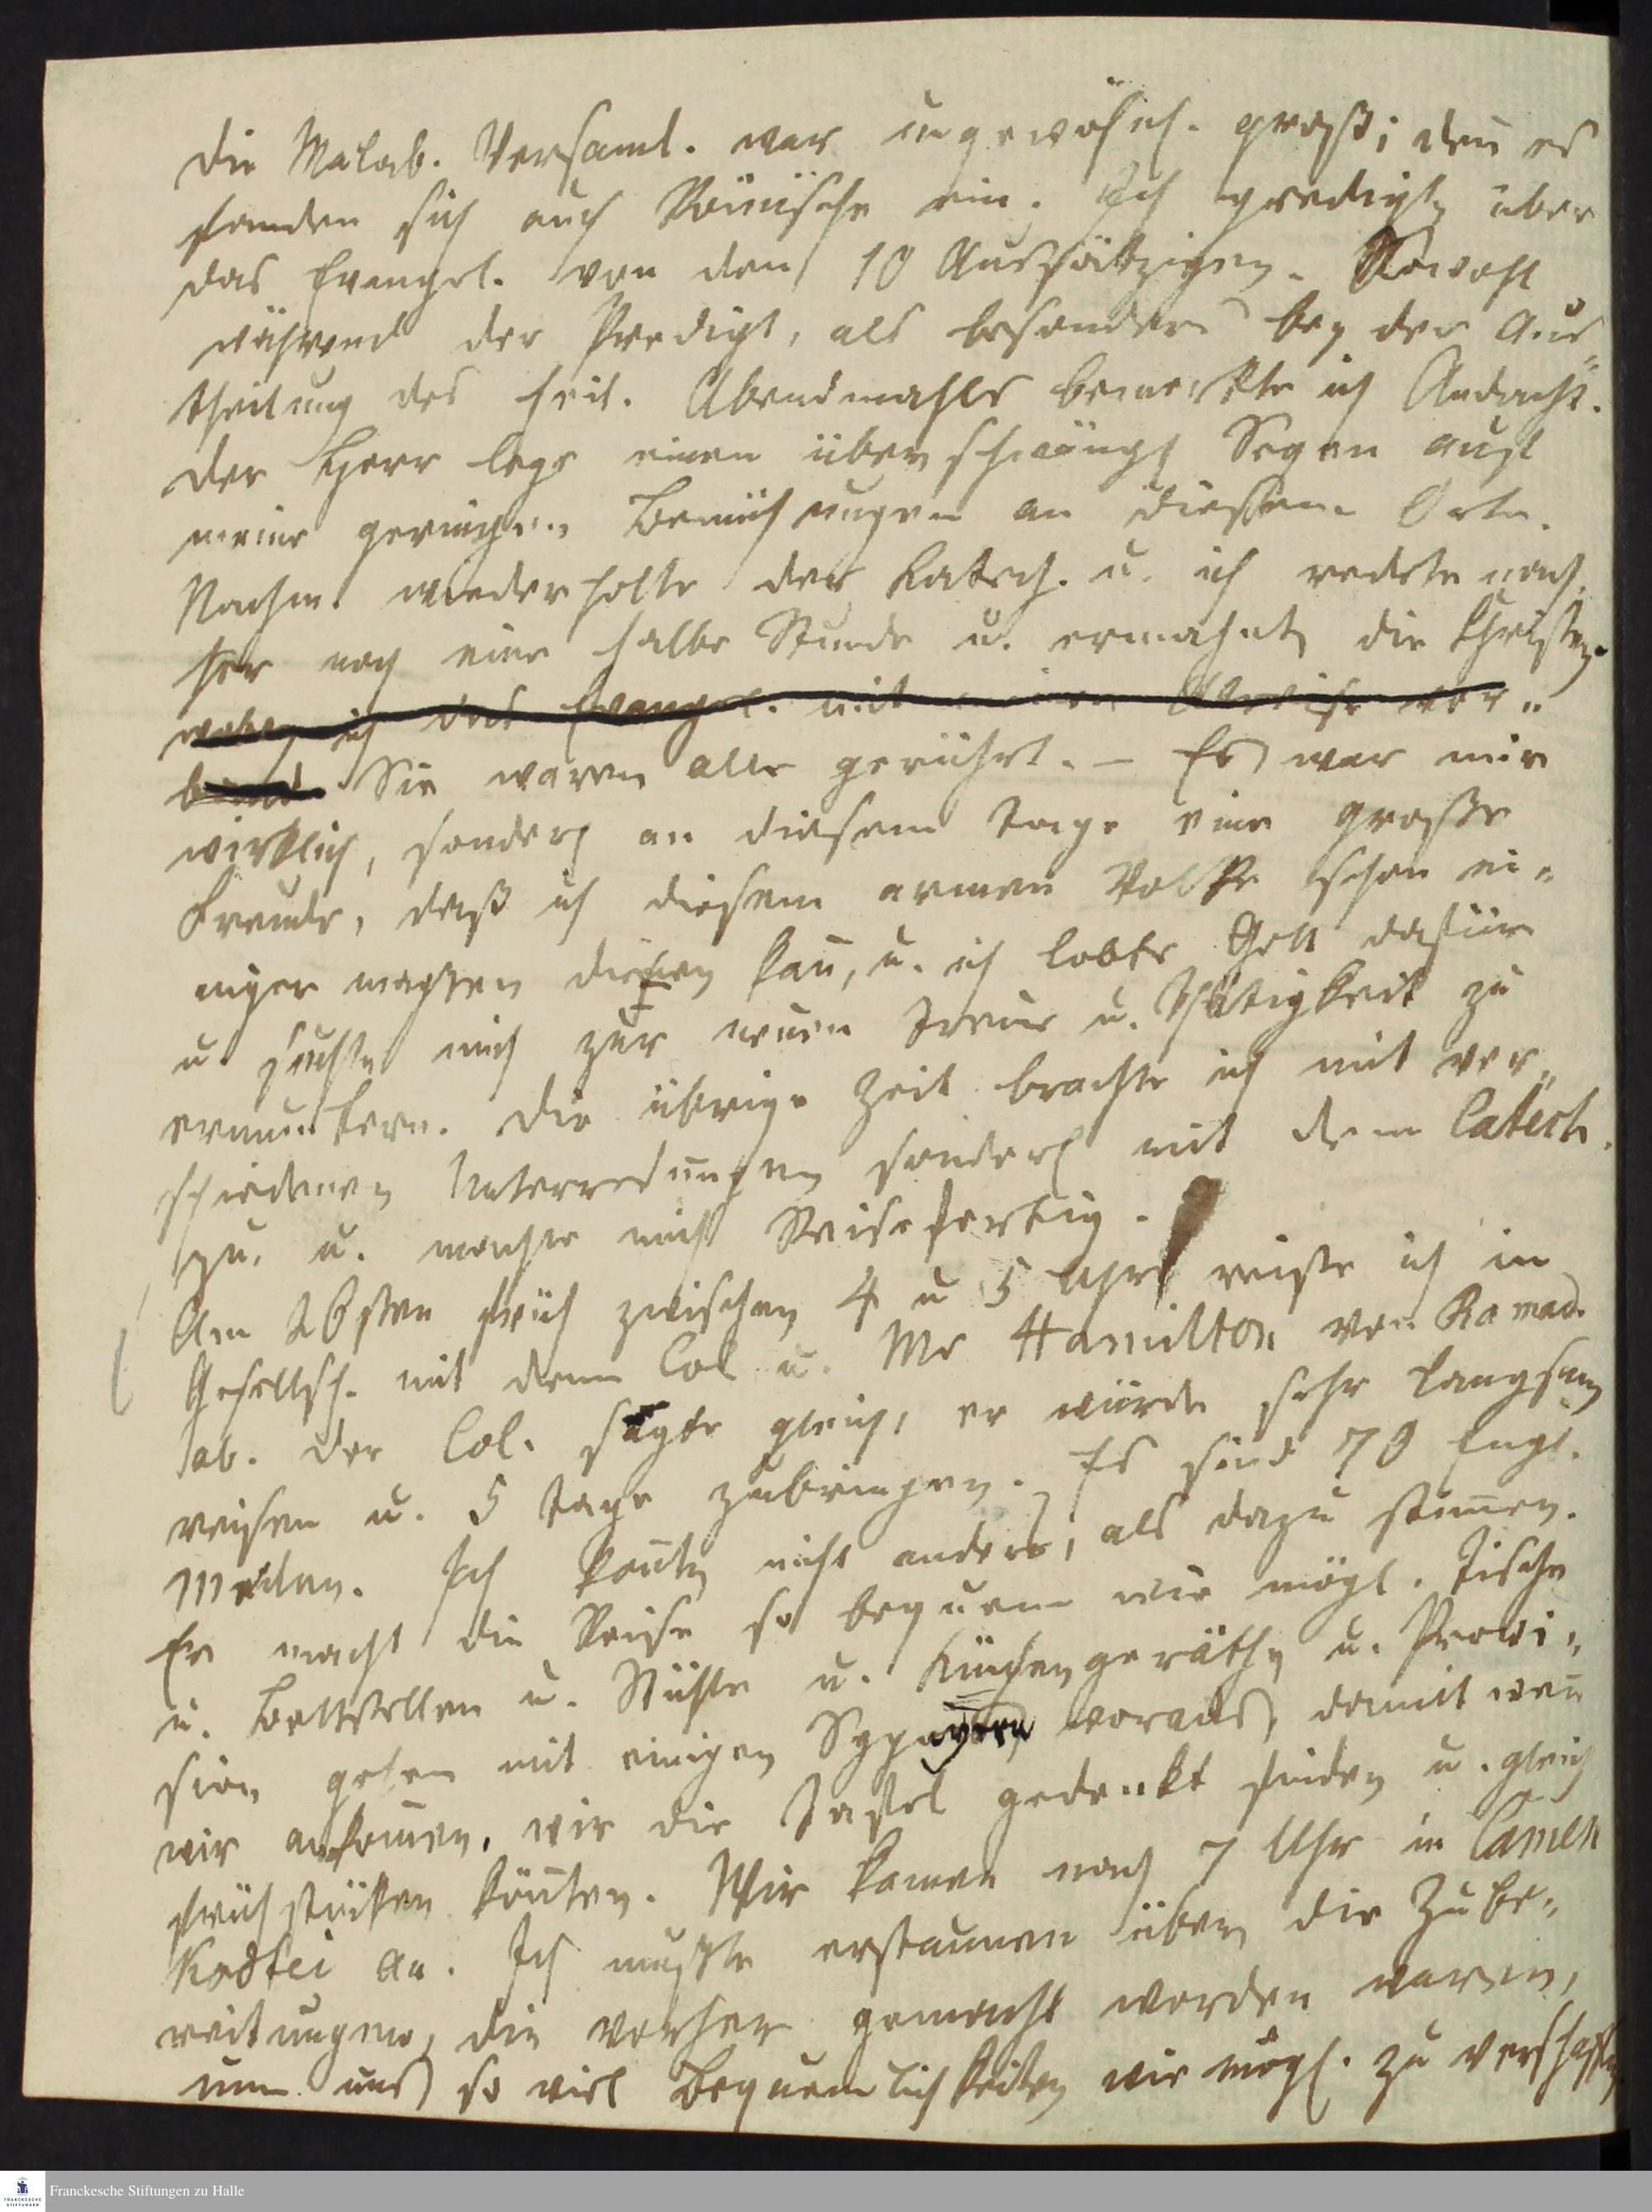 Die Malab. Versaml. war ungewöhnl. groß; den̄ es
fanden sich auch Römische ein. Ich predigte über
das Evangel. von den 10 Aussätzigen. Sowohl
während der Predigt, als besonders bey der Aus-
theilung des heil. Abendmahls bemerkte ich Andacht.
Der Herr lege einen überschwängl Segen auf
meine geringen Bemühungen an diesem Orte.
Nachm. wiederholte der Katech. u. ich redete nach-
her noch eine halbe Stunde u. ermahnte die Christen.
wobey ich das Evangel. mit meiner Abreise ver-
band. Sie waren alle gerührt. – Es war mir
wirklich, sonderl an diesem Tage eine große
Freude, daß ich diesem armen Volke schon ei-
niger maßen dienen kan̄, u. ich lobte Gott dafür
u. suchte mich zur neuen Treue u. Thätigkeit zu
ermuntern. Die übrige Zeit brachte ich mit ver-
schiedenen Unterredungen sonderl mit dem Catech.
zu, u. machte mich Reisefertig.
Am 26sten früh zwischen 4 u 5 Uhr reiste ich in
Gesellsch. mit dem Col u. Mr Hamilton von Ramad.
ab. Der Col. sagte gleich, er würde sehr langsam
reisen u. 5 Tage zubringen. Es sind 70 Engl.
Meilen. Ich kon̄te nicht anders, als dazu stim̄en.
Er macht die Reise so bequem wie mögl. Tische
u. Bettstellen u. Stühle u. Küchengeräthe u. Provi-
sion gehen mit einigen voraus, damit wen̄
wir ankom̄en, wir die Tafel gedeckt finden u. gleich
frühstüken kön̄ten. Wir kamen nach 7 Uhr in Camen
Kodtei an. Ich mußte erstaunen über die Zube-
reitungen, die vorher gemacht worden waren,
um uns so viel Bequemlichkeiten wie mögl. zu verschaffen
Franckesche Stiftungen zu Halle